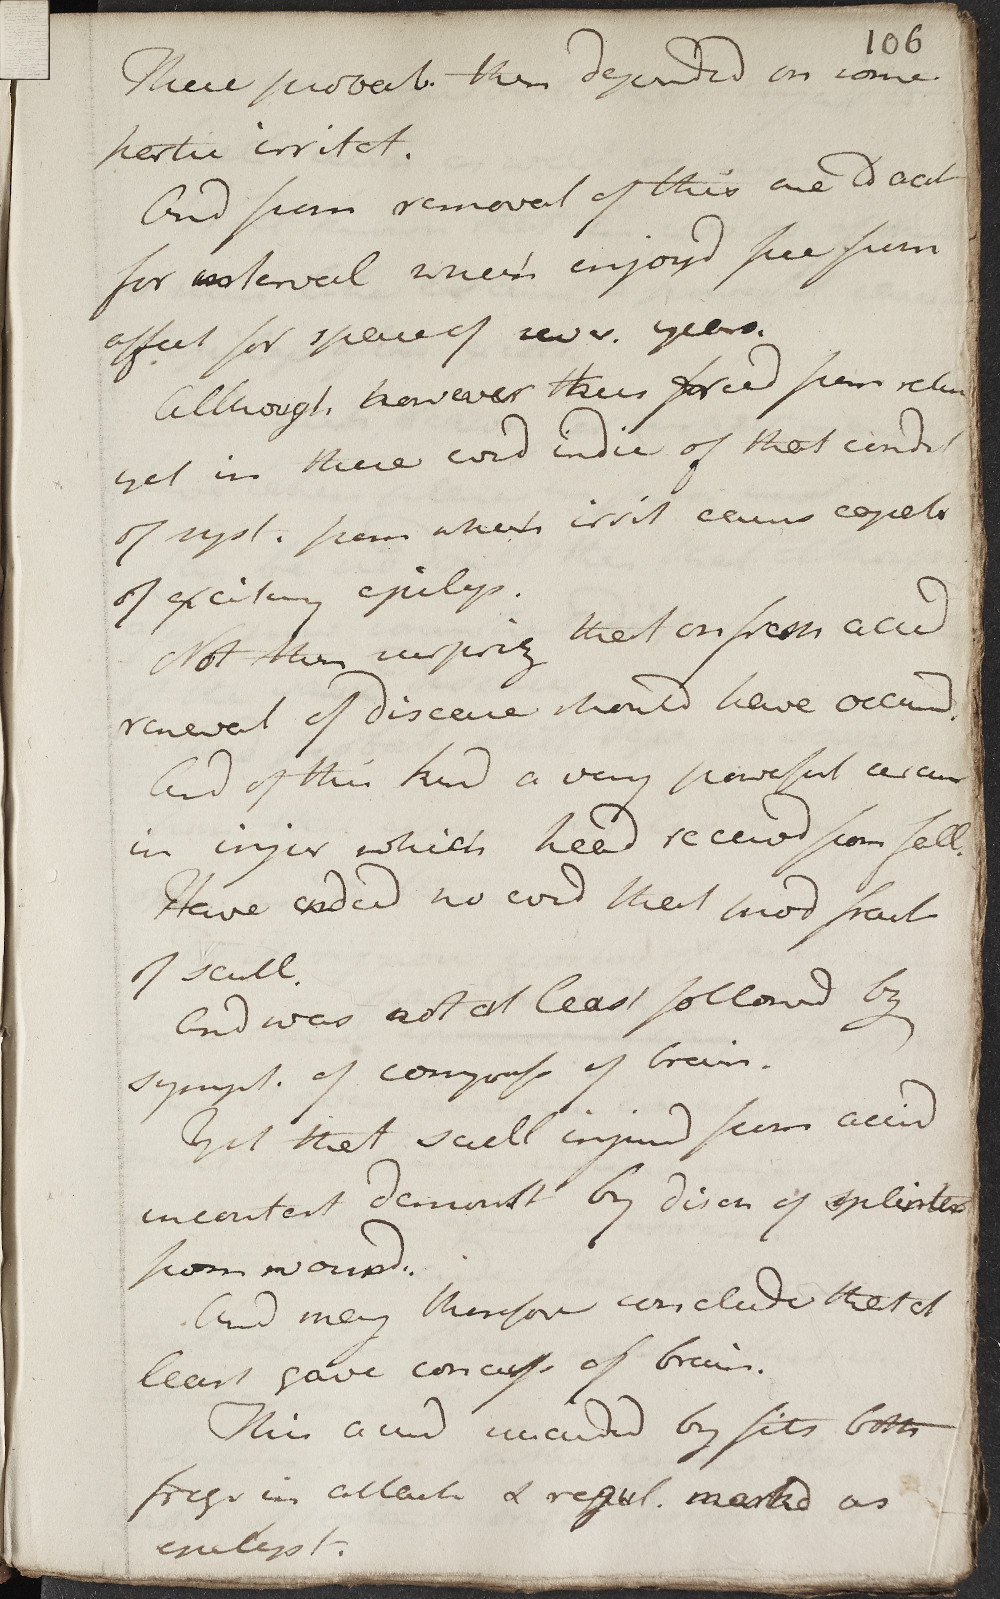 106
These probab. then depended on some
partic irritat.
And from removal of this one
for interval which enjoyd free from
affect for space of sever. years.
Although however thus freed from return
yet in these cord indic of that condit
of syst. from which irrit causes capab
of exciting epileps.
Not then surprizg that on fresh accid
renewal of disease should have occurrd.
And of this kind a very powerful
in injur which head receivd from fall.
Have indeed no evid that prod fract
of scull.
And was not at least followd by
sympt. of compress of brain.
Yet that scull injurd from accid
incontest demonst by disch of splinter
from wound.
And may therefore conclude that at
least gave concuss of brain.
This accid succeeded by fits both
freqt in attack & regul. markd as
epilept.